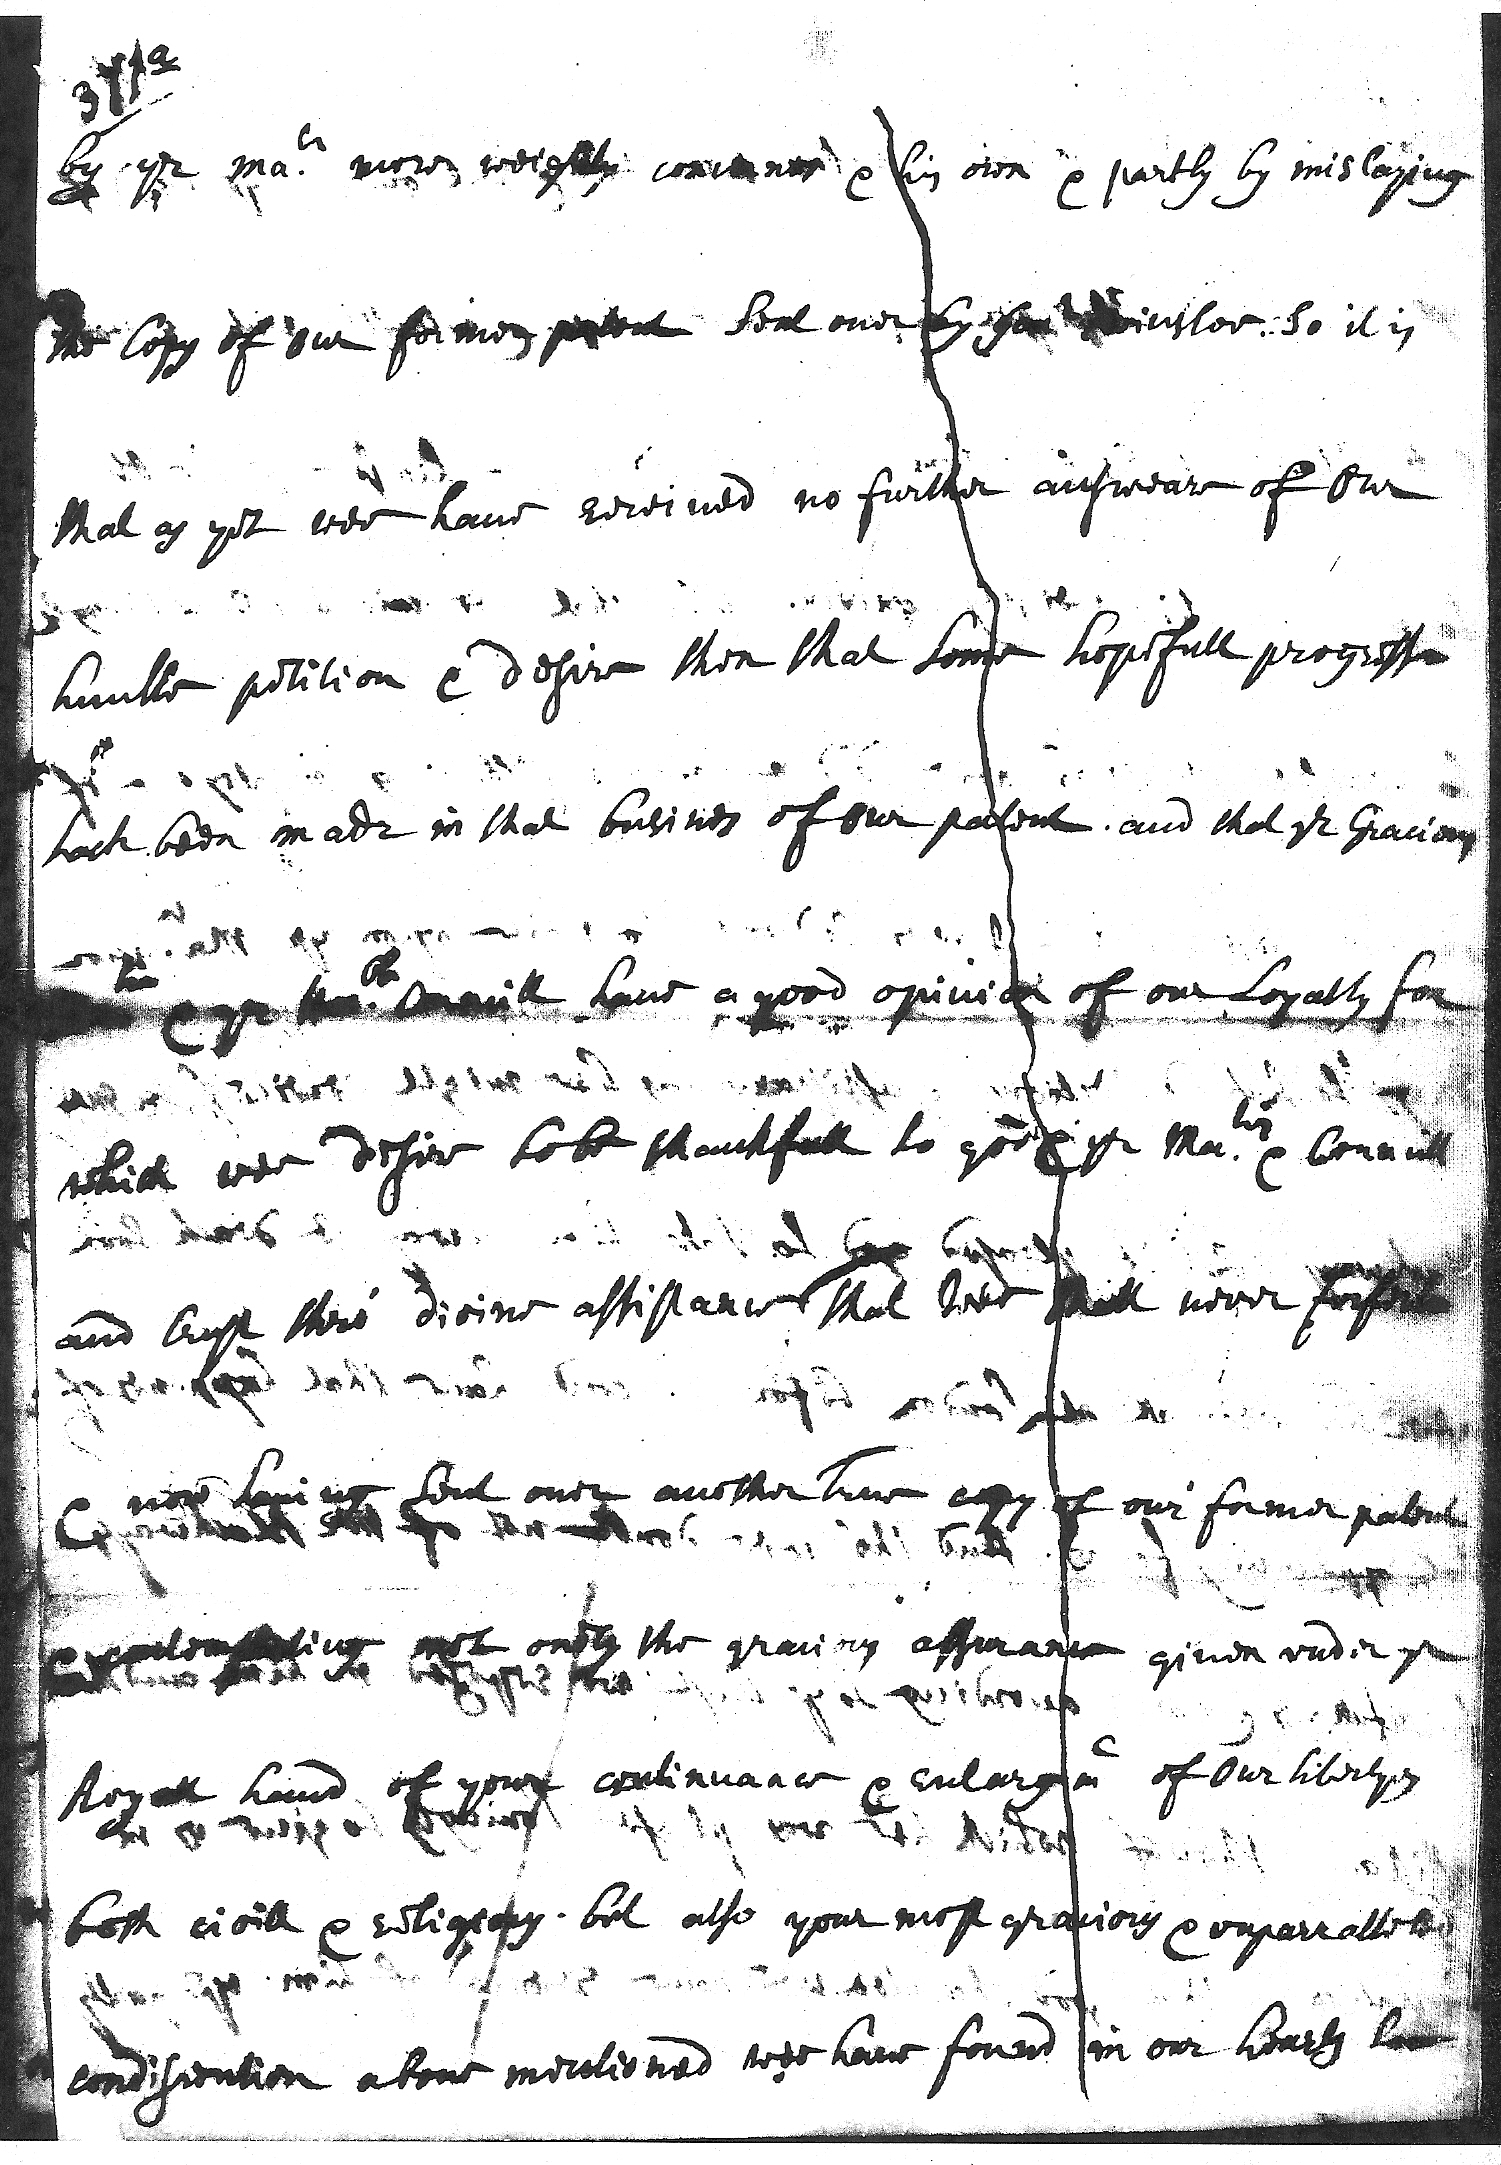 371a
by yr ma.ties more weighty concernes & his own & partly by mislaying
the Copy of our former patent sent over by ... So it is
that as yet wee have received no further answeare of our
humble petition & desire then that some hopefull progresse
hath been made in that busines of our patent. and that yr Gracious
& yr Hon.ble Councill have a good opinion of our Loyalty for
which wee desire to be thankfull to god & yr Ma.ties & Councill
and trust thro' divine assistance that wee shall never forfeit
& now having sent over another True copy of our former patent
& contemplating not onely the gracious assurance given under yr
Royall hand of your continuance & enlargmt of Our libertyes
both civill & religious. but also your most gracious & unparralleled
condissention above mentioned wee have found in our hearts